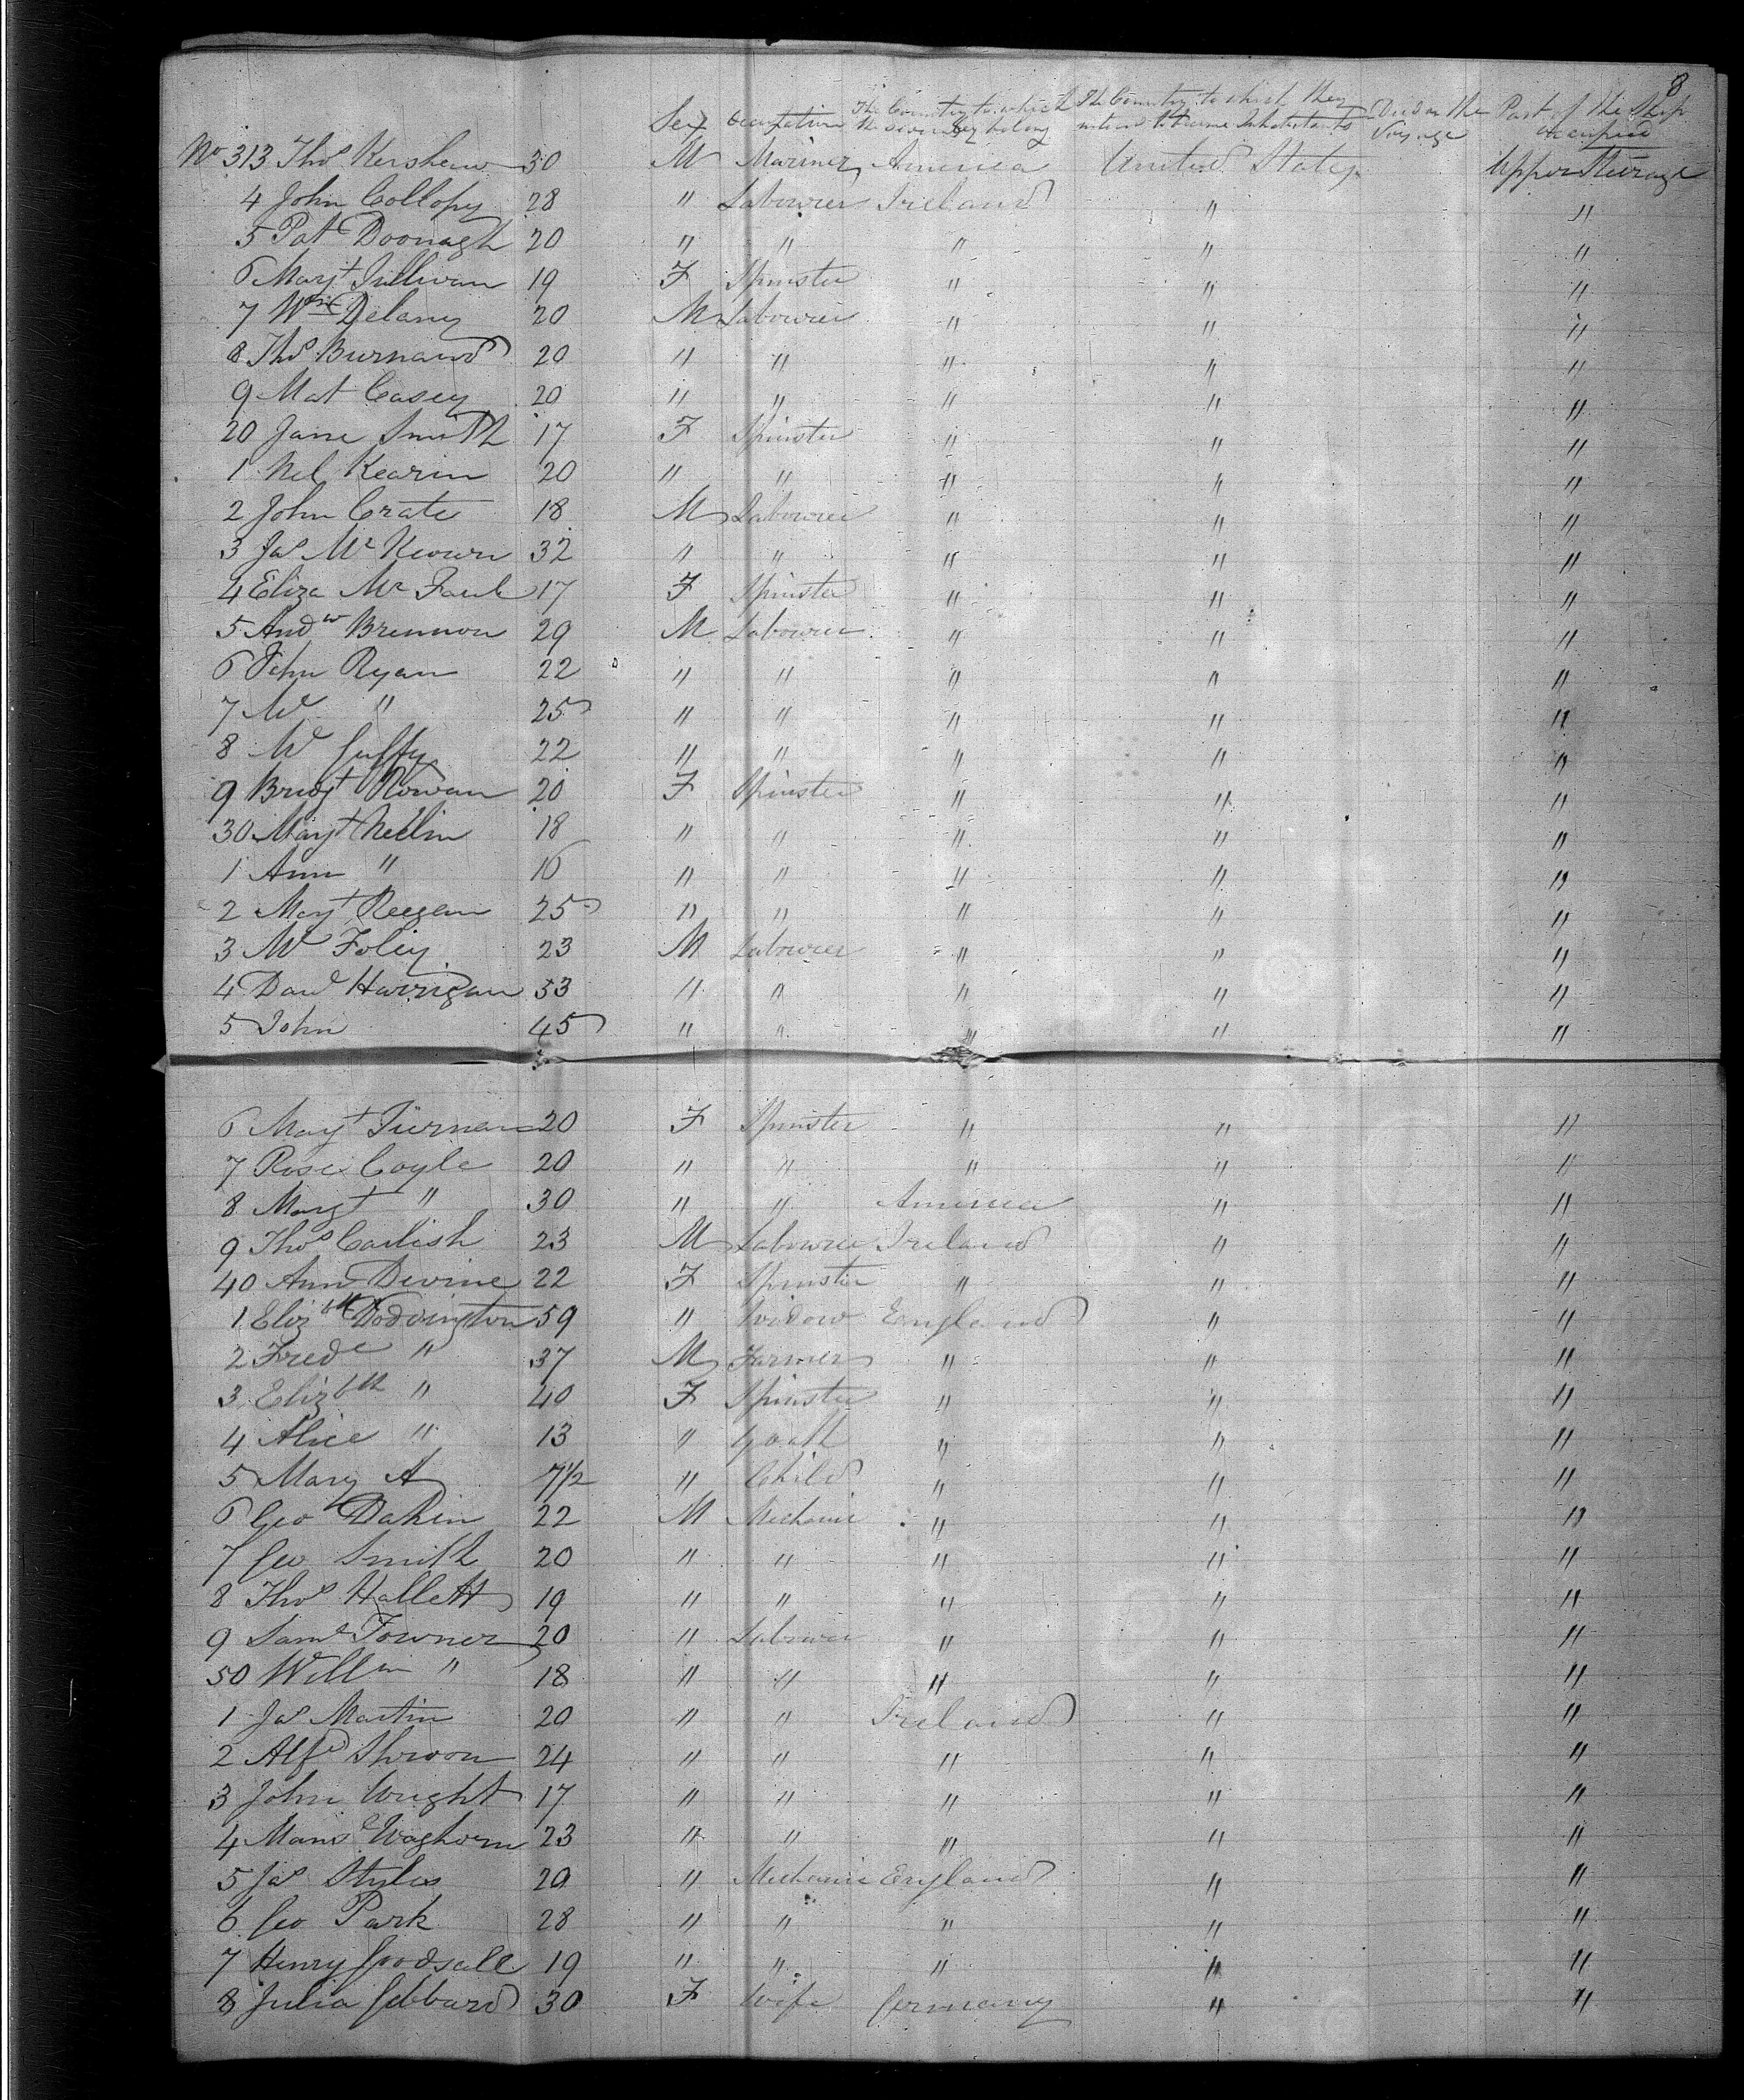 8
Sex Occupation The Country to which they severally belong The Country to which they intend to become Inhabitants Died on the Voyage Part of the Ship occupied
No 313 Thos Kershaw 30 M Mariner America United States Upper Steerage
4 John Collopy 28 " Labourer Ireland " "
5 Pat Doonagh 20 " " " " "
6 Margt Sullivan 19 F Spinster " " "
7 Wm Delany 20 M Labourer " " "
8 Thos Burnand 20 " " " " "
9 Mat Casey 20 " " " " "
20 Jane Smith 17 F Spinster " " "
1 Nel Kearin 20 " " " " "
2 John Crate 18 M Labourer " " "
3 Jas McKeown 32 " " " " "
4 Eliza Mc Faul 17 F Spinster " " "
5 Andw Brennon 29 M Labourer " " "
6 John Ryan 22 " " " " "
7 W " 25 " " " " "
8 W Guffy 22 " " " " "
9 Bridgt Rowan 20 F Spinster " " "
30 Margt Neilin 18 " " " " "
1 Ann " 16 " " " " "
2 Margt Reegan 25 " " " " "
3 W Foley 23 M Labourer " " "
4 Davd Harrigan 53 " " " " "
5 John 45 " " " " "
6 Margt Tiernan 20 F Spinster " " "
7 Rose Coyle 20 " " " " "
8 Margt " 30 " " America " "
9 Thos Carlish 23 M Labourer Ireland " "
40 Ann Devine 22 F Spinster " " "
1 Elizbth Doddington 59 " Widow England " "
2 Frede " 37 M Farmer " " "
3 Elizbth " 40 F Spinster " " "
4 Alice " 13 " Youth " " "
5 Mary A 7½ " Child " " "
6 Geo Dakin 22 M Mechanic " " "
7 Geo Smith 20 " " " " "
8 Thos Hallett 19 " " " " "
9 Saml Towner 20 " Labourer " " "
50 Willm " 18 " " " " "
1 Jas Martin 20 " " Ireland " "
2 Alfd Shroon 24 " " " " "
3 John Wright 17 " " " " "
4 Mans Waghorn 23 " " " " "
5 Jas Styles 20 " Mechanic England " "
6 Geo Park 28 " " " " "
7 Henry Goodsall 19 " " " " "
8 Julia Gebbard 30 F Wife Germany " "